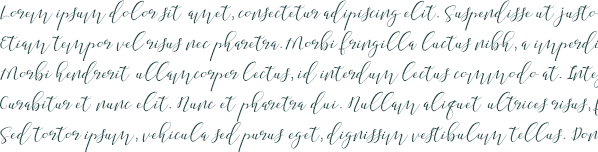 Lorem ipsum dolor sit amet, consectetur adipiscing elit. Suspendisse ut justo
Etiam tempor vel risus nec pharetra. Morbi fringilla luctus nibh, a imperdi
Morbi hendrerit ullamcorper lectus, id interdum lectus commodo at. Inte
Curabitur et nunc elit. Nunc et pharetra dui. Nullam aliquet ultrices risus, f
Sed tortor ipsum, vehicula sed purus eget, dignissim vestibulum tellus. Don